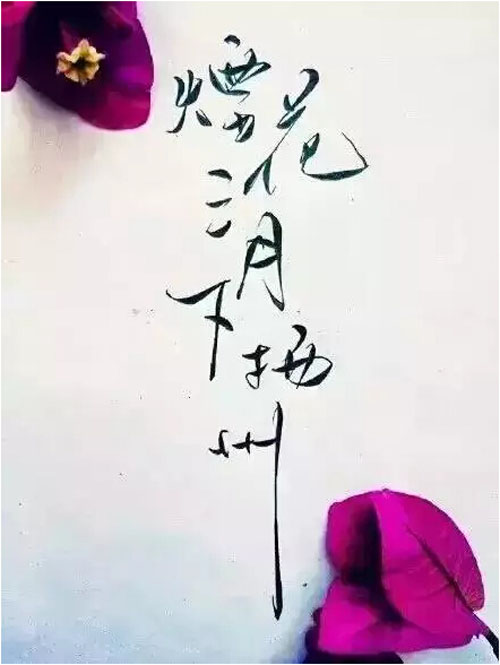 煙花三月下扬州